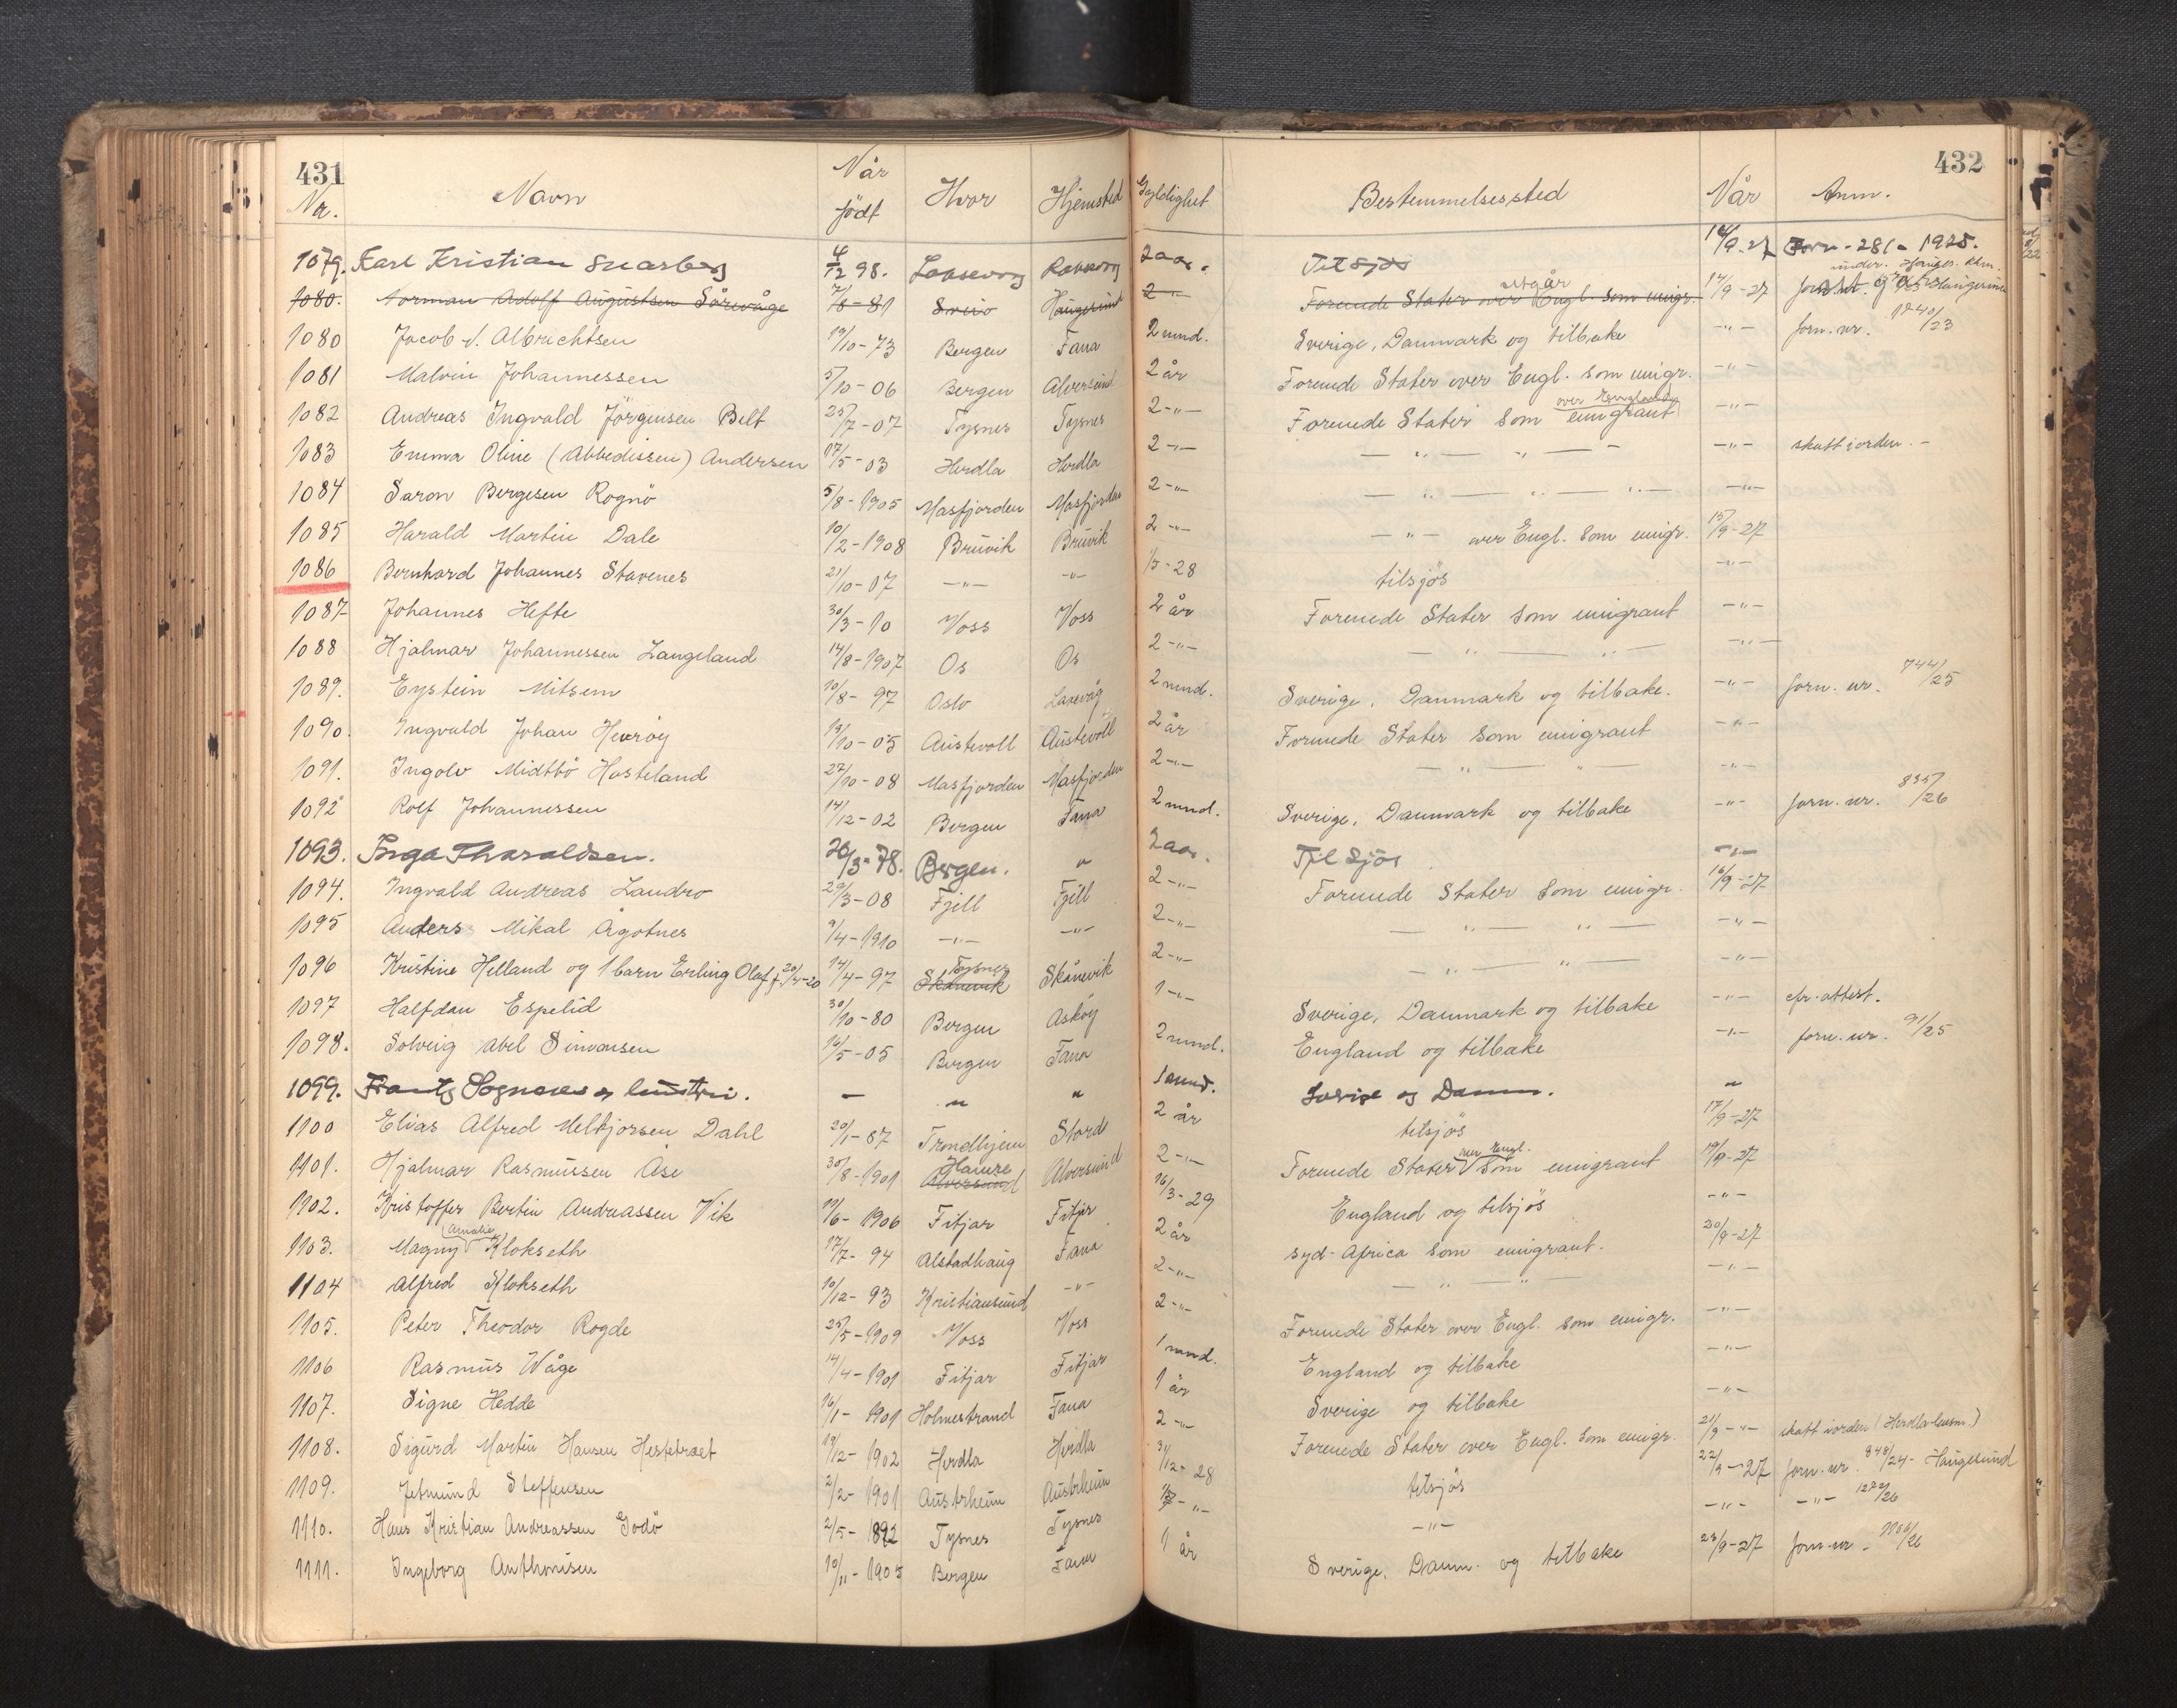 431
432
Nr. Navn Når født Hvor Hjemsted Gyldighet Bestemmelsessted Når Anm.
1079. Karl Kristian Snarberg 4/12 98. Laksevog Laksevog 2 aar. Til sjös 14/9-27 Forn - 281 - 1925.
1080. Norman Adolf Augustsen Sörevåge 7/8-81 Sveio Haugesund 2 -"- Forenede Stater over Engl. som emigr. utgår 14/9-27
1080 Jacob A. Albrechtsen 19/10-73 Bergen Fana 2 mnd. Sverige, Danmark og tilbake -"- forn. nr. 1240/23
1081 Malvin Johannessen 5/10-06 Bergen Alversund 2 år Forenede Stater over Engl. som emigr. -"-
1082 Andreas Ingvald Jörgensen Belt 25/7-07 Tysnes Tysnes 2 -"- Forenede Stater som over England emigrant -"-
1083 Emma Oline (Abbedissen) Andersen 17/5-03 Herdla Herdla 2 -"- -"- -"- -"- skatt i orden. -
1084 Saron Bergesen Rognö 5/8-1905 Masfjorden Masfjorden 2 -"- -"- -"- -"- -"-
1085 Harald Martin Dale 10/2-1908 Bruvik Bruvik 2 -"- -"- over Engl. som emigr. 15/9-27
1086 Bernhard Johannes Stavenes 21/10-07 -"- -"- 1/5-28 tilsjös -"-
1087 Johannes Hefte 30/3-10 Voss Voss 2 år Forenede Stater som emigrant -"-
1088 Hjalmar Johannessen Langeland 14/8-1907 Os Os 2 -"- -"- -"- -"-
1089. Eystein Mitsem 10/8-97 Oslo Laxevåg 2 mnd. Sverige, Danmark og tilbake. -"- forn. nr. 744/25
1090. Ingvald Johan Hevröy 13/10-05 Austevoll Austevoll 2 år Forenede Stater som emigrant -"-
1091. Ingolv Midtbö Hosteland 27/10-08 Masfjorden Masfjorden 2 -"- -"- -"- -"-
1092 Rolf Johannessen 14/12-02 Bergen Fana 2 mnd. Sverige, Danmark og tilbake -"- forn. nr. 835/26
1093. Inga Tharaldsen. 26/3-78. Bergen. " 2 aar. Til sjös -"-
1094. Ingvald Andreas Landro 29/3-08 Fjell Fjell 2 -"- Forenede Stater som emigr. 16/9-27
1095 Anders Mikal Ågotnes 9/4-1910 -"- -"- 2 -"- -"- -"- -"-
1096 Kristine Helland og 1 barn Erling Olaf f. 20/4-20 14/4-97 Skånevik Tysnes Skånevik 2 -"- -"- -"- -"-
1097 Halfdan Espelid 30/10-80 Bergen Asköy 1 -"- Sverige, Danmark og tilbake -"- cfr. attest.
1098. Solveig Abel Simonsen 16/5-05 Bergen Fana 2 mnd. England og tilbake -"- forn. nr. 91/25
1099. Frantz Sognnes og hustru. - " " 1 mnd. Sverige og Danm. "
1100 Elias Alfred Meltzorsen Dahl 20/1-87 Trondhjem Stord 2 år tilsjös 17/9-27
1101. Hjalmar Rasmussen Åse 30/8-1901 Alversund Hamre Alversund 2 -"- Forenede Stater over Engl. som emigrant 19/9-27
1102. Kristoffer Bertin Andreassen Vik 11/6-1906 Fitjar Fitjar 16/3-29 England og tilsjös -"-
1103. Magny Amalie Klokseth 17/7-94 Alstadhaug Fana 2 år Syd-Africa som emigrant. 20/9-27
1104 Alfred Klokseth 10/12-93 Kristiansund -"- 2 -"- -"- -"- -"-
1105. Peter Theodor Rogde 25/5-1909 Voss Voss 2 -"- Forenede Stater over Engl. som emigr. -"-
1106 Rasmus Våge 14/4-1901 Fitjar Fitjar 1 mnd. England og tilbake -"-
1107. Signe Hedde 16/1-1901 Holmestrand Fana 1 år Sverige og tilbake -"-
1108. Sigurd Martin Hansen Hestetræet 19/12-1902 Herdla Herdla 2 -"- Forenede Stater over Engl. som emigr. 21/9-"- skatt i orden (Herdla lensm.)
1109. Jetmund Steffensen 2/2-1901 Austrheim Austrheim 31/12-28 tilsjös 22/9-27 forn. nr. 848/24 - Haugesund
1110. Hans Kristian Andreassen Godö 2/5-1892 Tysnes Tysnes -"- -"- -"- -"- 1272/26
1111. Ingeborg Anthonisen 10/11-1905 Bergen Fana 1 år Sverige, Danm. og tilbake 23/9-27 forn. nr. 1156/26